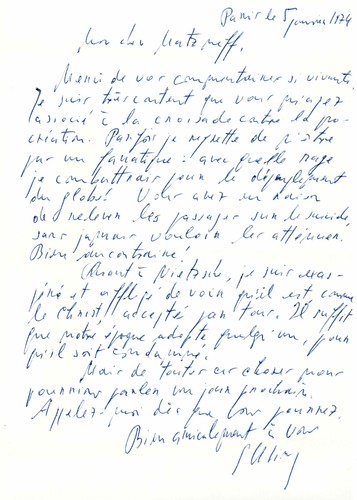 Paris le 5 janvier 1974
Mon cher Matzneff,
Merci de vos commentaires si vivants.
Je suis très content que vous m'ayez
associé à la croisade contre la pro-
création. Parfois je regrette de n'être
pas un fanatique : avec quelle rage
je combattrais pour le dépeuplement
du globe! Vous avez eu raison
de relever les passages sur le suicide
sans jamais vouloir les atténuer.
Bien au contraire!
Quant à Nietzsche, je suis exas-
péré et affligé de voir qu'il est comme
le Christ accepté par tous. Il suffit
que notre époque adopte quelqu'un, pour
qu'il soit condamné.
Mais de toutes ces choses nous
pourrions parler un jour prochain.
Appelez-moi dès que vous pourrez.
Bien amicalement à vous